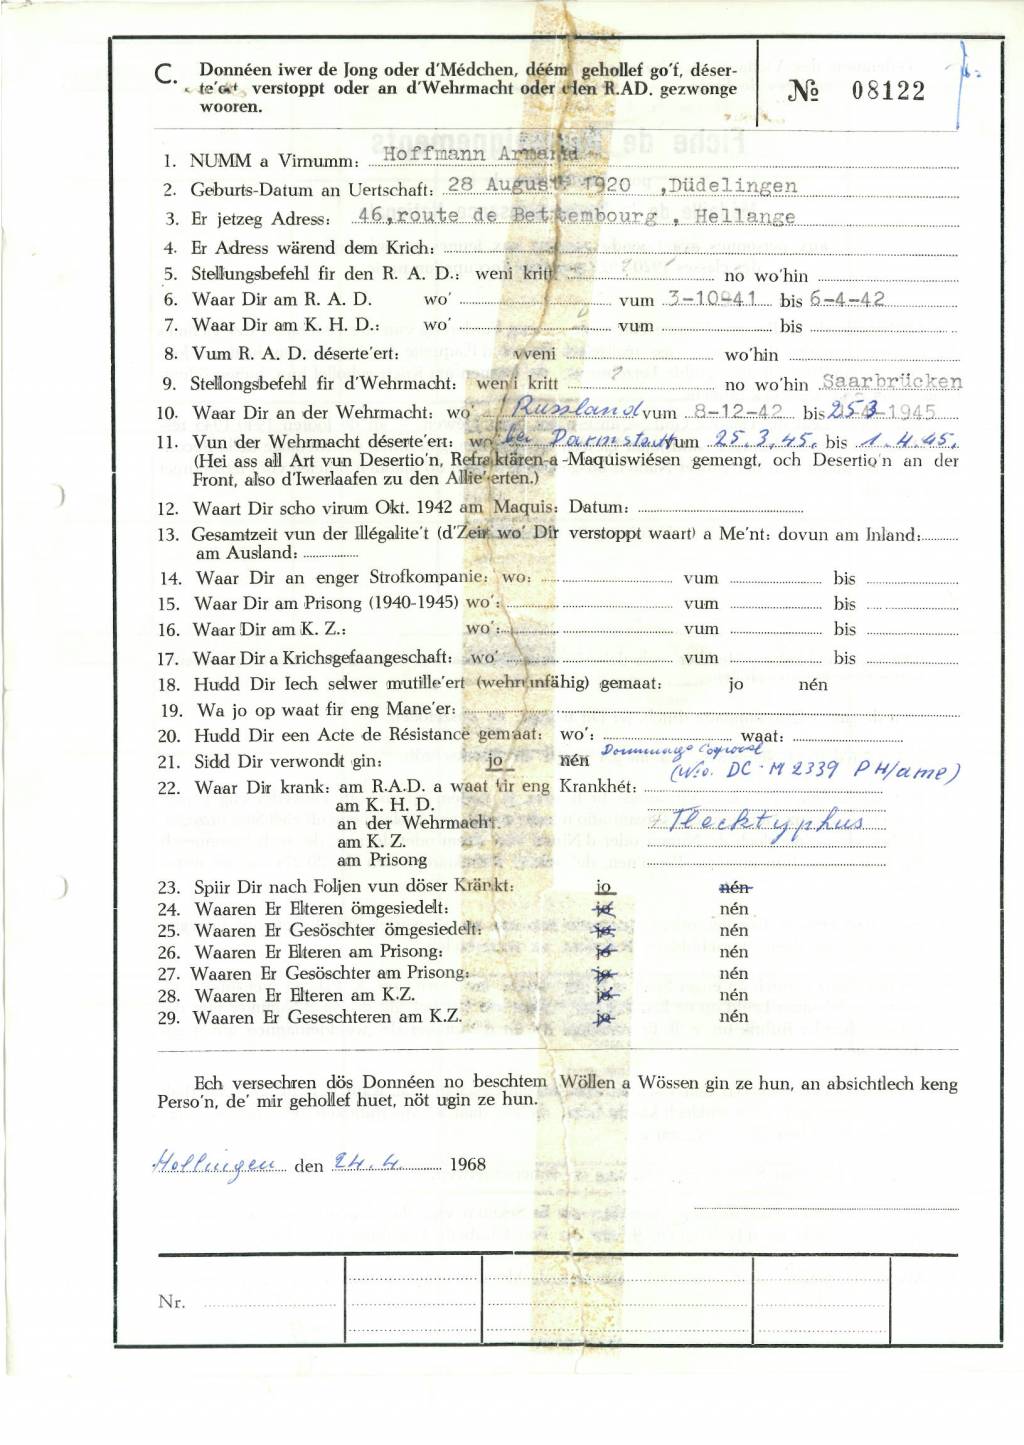 C. Donnéen iwer de Jong oder d'Médchen, déém gehollef go'f, déser-
te'ert, verstoppt oder an d'Wehrmacht oder den R.AD. gezwonge
wooren.
№ 08122
1. NUMM a Virnumm: Hoffmann Armand
2. Geburts-Datum an Uertschaft: 28 August 1920 ,Düdelingen
3. Er jetzeg Adress: 46,route de Bettembourg , Hellange
4. Er Adress wärend dem Krich:
5. Stellungsbefehl fir den R. A. D.: weni kritt ? no wo'hin
6. Waar Dir am R. A. D. wo' vum 3-10-41 bis 6-4-42
7. Waar Dir am K. H. D.: wo' vum bis
8. Vum R. A. D. déserte'ert: weni wo'hin
9. Stellongsbefehl fir d'Wehrmacht: weni kritt ? no wo'hin Saarbrücken
10. Waar Dir an der Wehrmacht: wo' Russland vum 8-12-42 bis 25 3 1945
11. Vun der Wehrmacht déserte'ert: wo bei Darmstadt vum 25.3.45. bis 1.4.45.
(Hei ass all Art vun Desertio'n, Refraktären-a -Maquiswiésen gemengt, och Desertio'n an der
Front, also d'Iwerlaafen zu den Allie'erten.)
12. Waart Dir scho virum Okt. 1942 am Maquis: Datum:
13. Gesamtzeit vun der Illégalite't (d'Zeit wo' Dir verstoppt waart) a Me'nt: dovun am Inland:
am Ausland:
14. Waar Dir an enger Strofkompanie: wo: vum bis
15. Waar Dir am Prisong (1940-1945) wo': vum bis
16. Waar Dir am K. Z.: wo': vum bis
17. Waar Dir a Krichsgefaangeschaft: wo' vum bis
18. Hudd Dir Iech selwer mutille'ert (wehrunfähig) gemaat: jo nén
19. Wa jo op waat fir eng Mane'er:
20. Hudd Dir een Acte de Résistance gemaat: wo': waat:
21. Sidd Dir verwondt gin: jo nén Dommage Corporel
(N:o. DC-M 2339 PH/ame)
22. Waar Dir krank: am R.A.D. a waat fir eng Krankhét:
am K. H. D.
an der Wehrmacht. + Flecktyphus
am K. Z.
am Prisong
23. Spiir Dir nach Foljen vun döser Kränkt: jo nén
24. Waaren Er Elteren ömgesiedelt: jo nén
25. Waaren Er Gesöschter ömgesiedelt: jo nén
26. Waaren Er Elteren am Prisong: jo nén
27. Waaren Er Gesöschter am Prisong: jo nén
28. Waaren Er Elteren am K.Z. jo nén
29. Waaren Er Geseschteren am K.Z. jo nén
Ech versechren dös Donnéen no beschtem Wöllen a Wössen gin ze hun, an absichtlech keng
Perso'n, de' mir gehollef huet, nöt ugin ze hun.
Hellingen den 24.4. 1968
Nr.